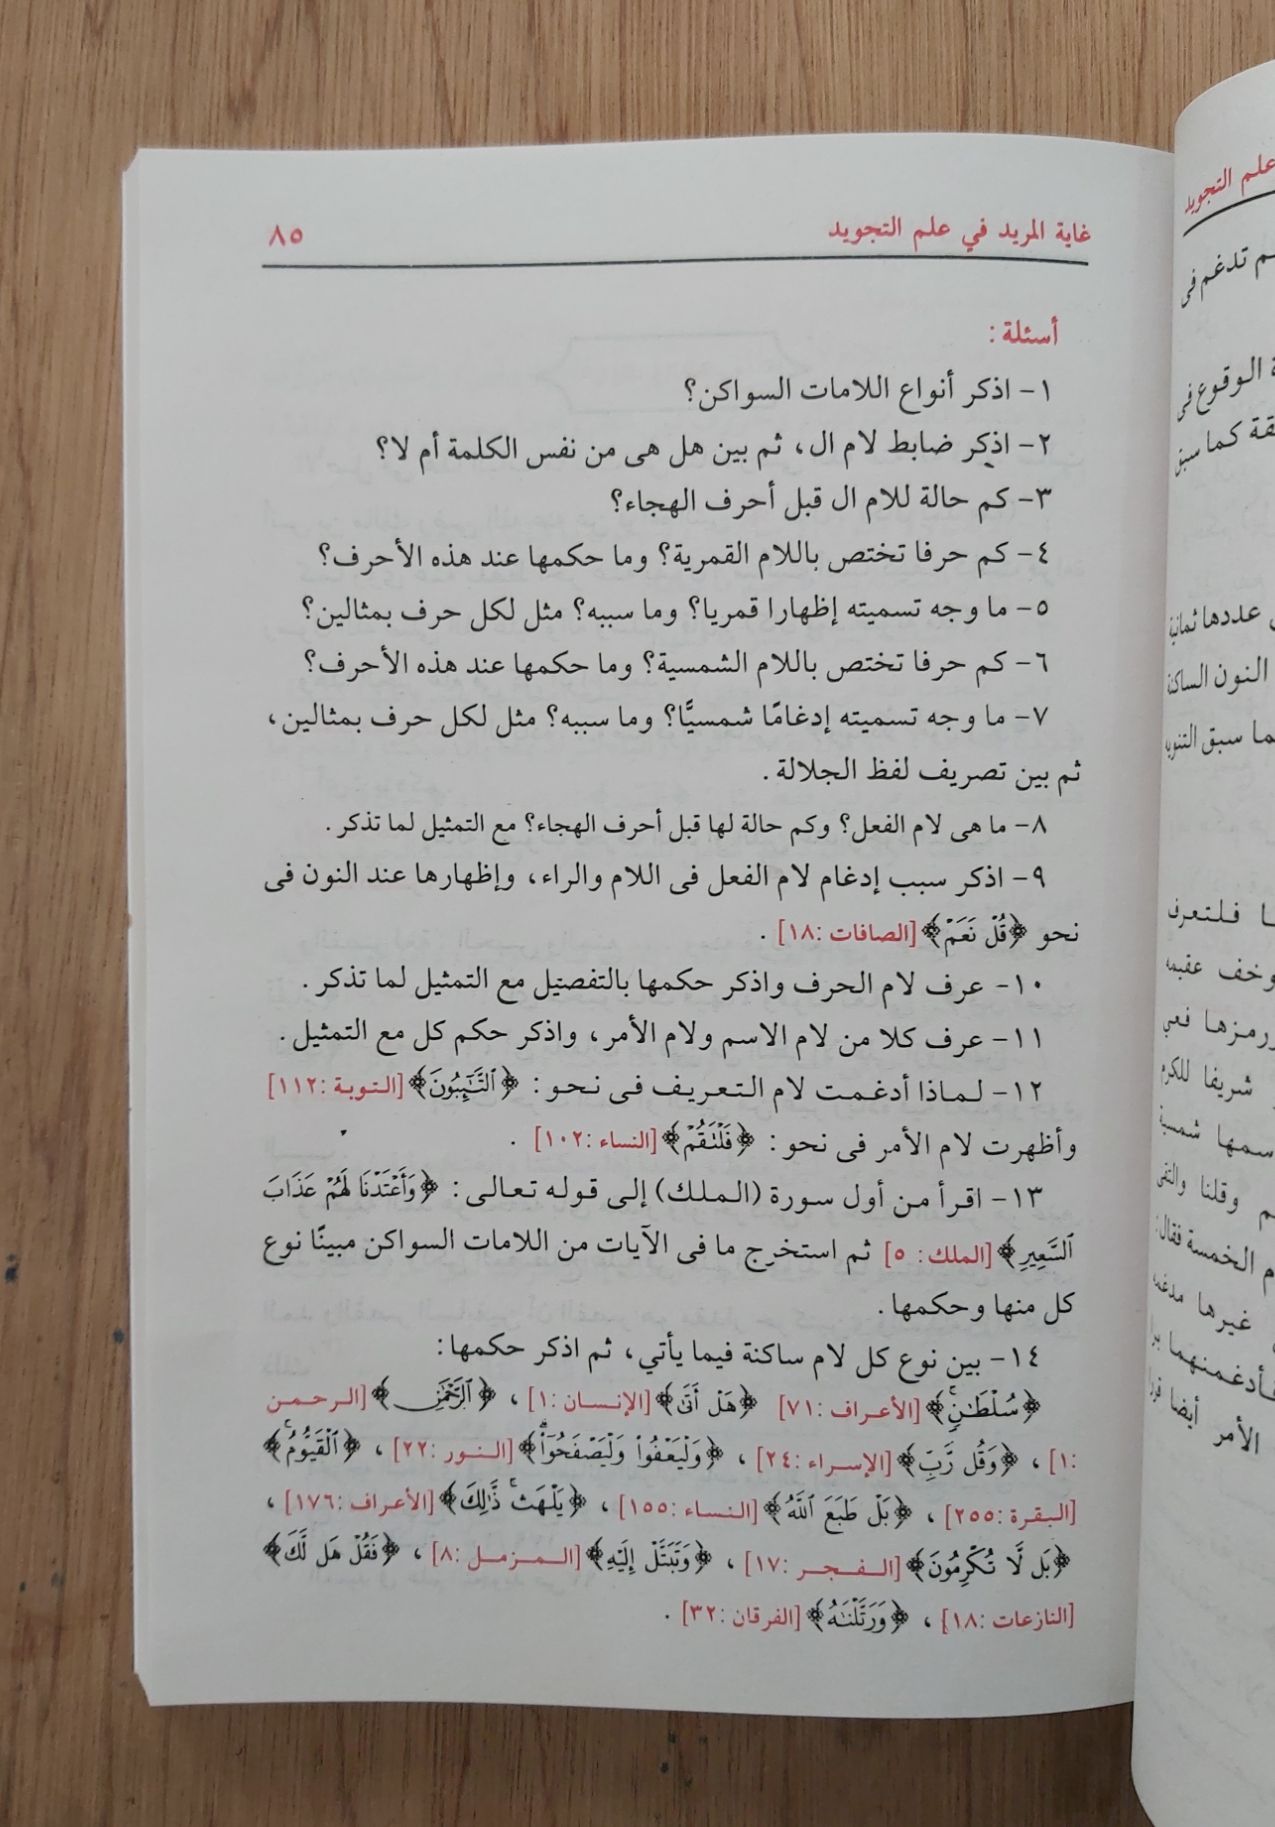 غاية المريد في علم التجويد ٨٥
أسئلة :
١- اذكر أنواع اللامات السواكن؟
٢- اذكر ضابط لام ال ، ثم بين هل هى من نفس الكلمة أم لا؟
٣- كم حالة للام ال قبل أحرف الهجاء؟
٤- كم حرفا تختص باللام القمرية؟ وما حكمها عند هذه الأحرف؟
٥- ما وجه تسميته إظهارا قمريا؟ وما سببه؟ مثل لكل حرف بمثالين؟
٦- كم حرفا تختص باللام الشمسية؟ وما حكمها عند هذه الأحرف؟
٧- ما وجه تسميته إدغامًا شمسيًّا؟ وما سببه؟ مثل لكل حرف بمثالين ،
ثم بين تصريف لفظ الجلالة .
٨- ما هى لام الفعل؟ وكم حالة لها قبل أحرف الهجاء؟ مع التمثيل لما تذكر .
٩- اذكر سبب إدغام لام الفعل فى اللام والراء ، وإظهارها عند النون فى
نحو ﴿قُلْ نَعَمْ﴾ [الصافات :١٨] .
١٠- عرف لام الحرف واذكر حكمها بالتفصيل مع التمثيل لما تذكر .
١١- عرف كلا من لام الاسم ولام الأمر ، واذكر حكم كل مع التمثيل .
١٢- لماذا أدغمت لام التعريف فى نحو : ﴿ٱلتَّٰٓئِبُونَ﴾ [التوبة :١١٢]
وأظهرت لام الأمر فى نحو : ﴿فَلْتَقُمْ﴾ [النساء :١٠٢] .
١٣- اقرأ من أول سورة (الملك) إلى قوله تعالى : ﴿وَأَعْتَدْنَا لَهُمْ عَذَابَ
ٱلسَّعِيرِ﴾ [الملك: ٥] ثم استخرج ما فى الآيات من اللامات السواكن مبينًا نوع
كل منها وحكمها .
١٤- بين نوع كل لام ساكنة فيما يأتي ، ثم اذكر حكمها :
﴿سُلْطَٰنٍ﴾ [الأعراف :٧١] ﴿هَلْ أَتَىٰ﴾ [الإنسان :١] ، ﴿ٱلرَّحْمَٰنِ﴾ [الرحمن
:١] ، ﴿وَقُل رَّبِّ﴾ [الإسراء :٢٤] ، ﴿وَلْيَعْفُوا۟ وَلْيَصْفَحُوٓا۟﴾ [النور :٢٢] ، ﴿ٱلْقَيُّومُ﴾
[البقرة :٢٥٥] ، ﴿بَلْ طَبَعَ ٱللَّهُ﴾ [النساء :١٥٥] ، ﴿يَلْهَث ذَّٰلِكَ﴾ [الأعراف :١٧٦] ،
﴿بَل لَّا تُكْرِمُونَ﴾ [الفجر :١٧] ، ﴿وَتَبَتَّلْ إِلَيْهِ﴾ [المزمل :٨] ، ﴿فَقُلْ هَل لَّكَ﴾
[النازعات :١٨] ، ﴿وَرَتَّلْنَٰهُ﴾ [الفرقان :٣٢] .
علم التجويد
تدغم فى
الوقوع فى
كما سبق
عددها ثمانية
النون الساكنة
سبق التنوين
فلتعرف
وخف
شريفا للكرم
شمسية
وقلنا والتقى
الخمسة فقال :
غيرها
الأمر أيضا